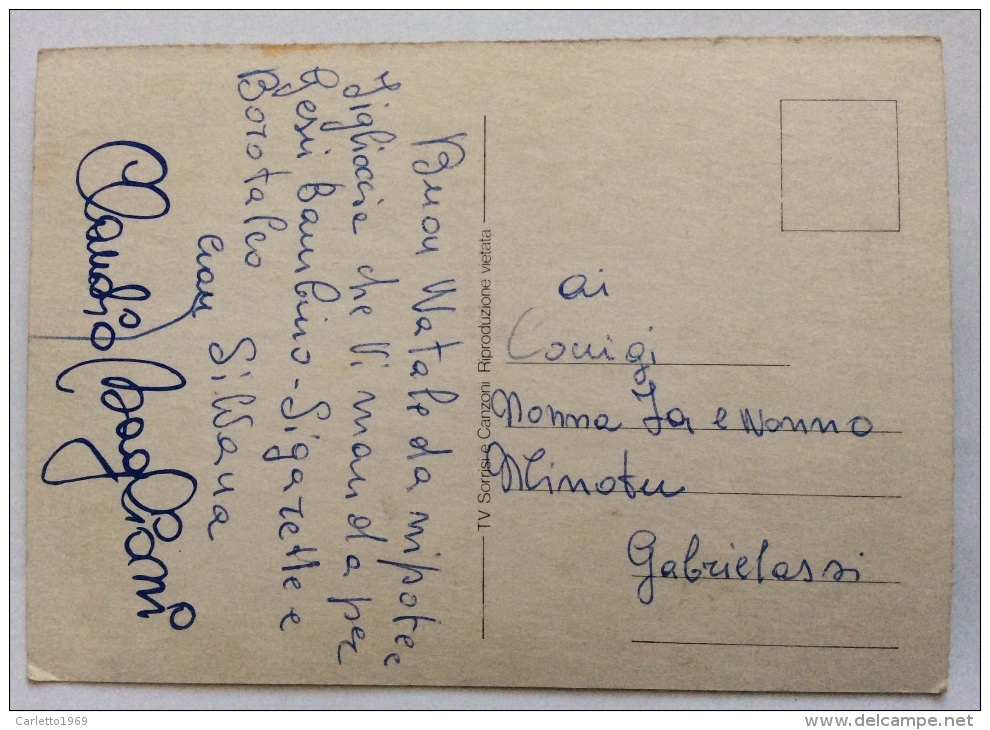 Buon Natale da nipote e
figlioccia che Vi manda per
Gesù Bambino - Sigarette e
Borotalco
ciau Silvana
Claudio Baglioni
TV Sorrisi e Canzoni Riproduzione vietata
ai
Coniugi
Nonna Ja e Nonno
Minotu
Gabrielassi
Carletto1969
www.delcampe.net